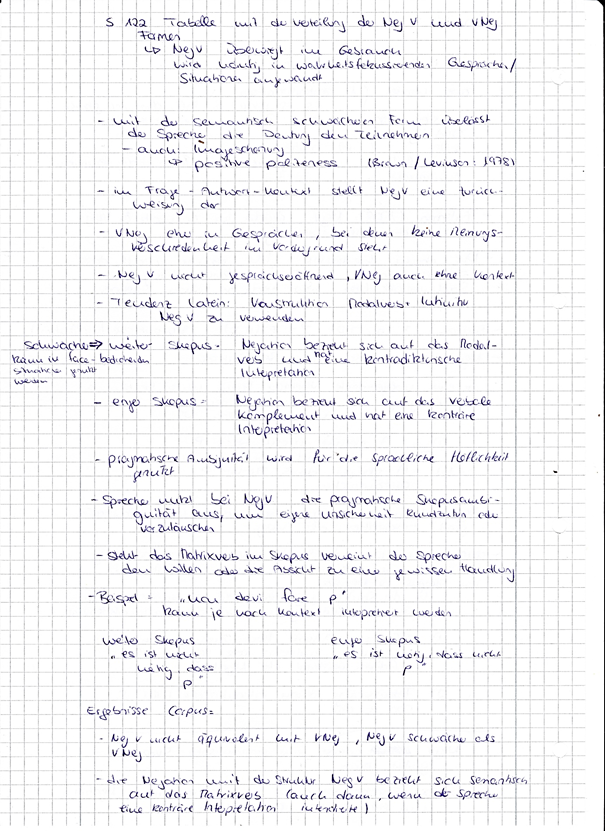 S 122 Tabelle mit der Verteilung der Neg V und VNeg
Formen
↳ Neg V überwiegt im Gebrauch
wird häufig in wahrheitsfokussierenden Gesprächen/
Situationen angewandt
- mit der semantisch schwächeren Form überlässt
der Sprecher die Deutung den Teilnehmern
- auch: Imageschonung
↳ positive politeness (Brown / Levinson: 1978)
- im Frage-Antwort-Kontext stellt NegV eine Zurück-
weisung dar
- VNeg eher in Gesprächen, bei denen keine Meinungs-
verschiedenheit im Vordergrund steht
- Neg V nicht gesprächseröffnend, VNeg auch ohne Kontext
- Tendenz Latein: Konstruktion Modalverb + Infinitiv
Neg V zu verwenden
schwächer ⇒ weiter Skopus = Negation bezieht sich auf das Modal-
kann in face-bedrohenden verb und hat eine kontradiktorische
Situationen genutzt Interpretation
werden
- enger Skopus = Negation bezieht sich auf das verbale
Komplement und hat eine konträre
Interpretation
- pragmatische Ambiguität wird für die sprachliche Höflichkeit
genutzt
- Sprecher nutzt bei NegV die pragmatische Skopusambi-
guität aus, um eigene Unsicherheit kundzutun oder
vorzutäuschen
- steht das Matrixverb im Skopus verneint der Sprecher
den Willen oder die Absicht zu einer gewissen Handlung
- Beispiel = "non devi fare p"
kann je nach Kontext interpretiert werden
weiter Skopus enger Skopus
"es ist nicht "es ist nötig, dass nicht
nötig, dass p"
p"
Ergebnisse Corpus =
- Neg V nicht äquivalent mit VNeg, NegV schwächer als
VNeg
- die Negation mit der Struktur NegV bezieht sich semantisch
auf das Matrixverb (auch dann, wenn der Sprecher
eine konträre Interpretation intendierte)